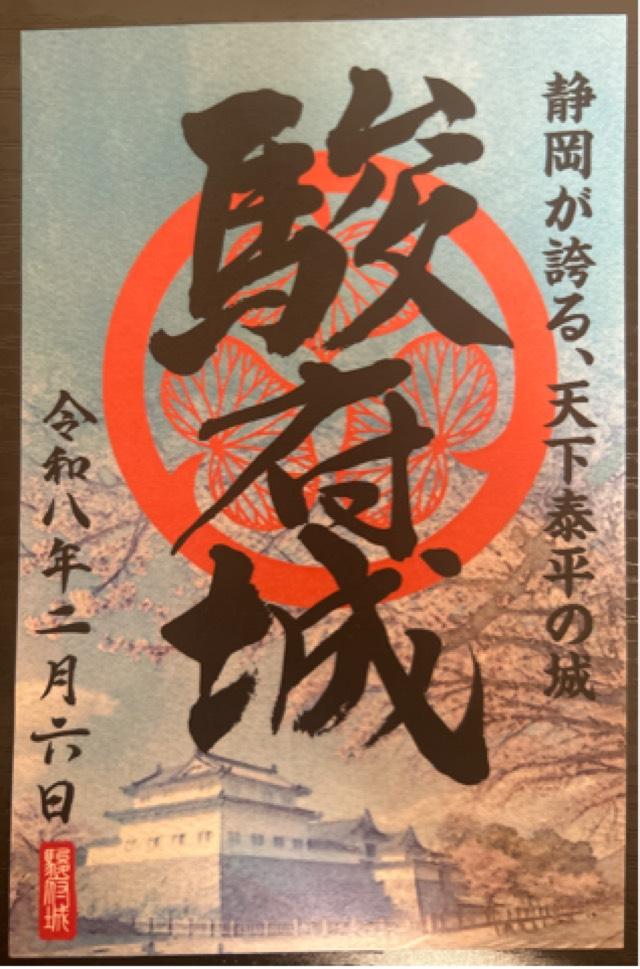 静岡が誇る、天下泰平の城
駿府城
令和八年二月六日
駿府城